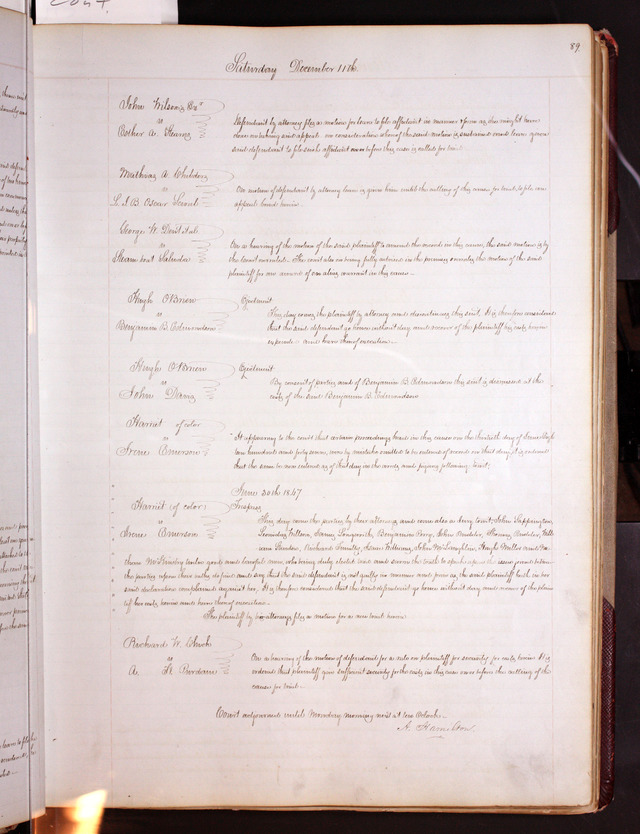 89
Saturday December 11th
John Wilson's Exr
vs
Esther A.
Defendant by attorney files a motion for leave to file affidavit in manner & form as this might have
been on taking said appeal on consideration whereof the said motion is sustained and leave given
said defendant to file such affidavit over before this case is called for trial
A
vs
L. & B. Oscar
On motion of defendant by attorney leave is given him until the calling of this cause for trial to file an
appeal bond herein
George W.
vs
Steam boat
On a hearing of the motion of the said plaintiff to amend the records in this cause, the said motion is by
the Court overruled. The court also being fully advised in the premises overrules the motion of the said
plaintiff for an award of an alias warrant in this cause
Hugh O'Brien
vs
Benjamin B. Edmondson
Ejectment
This day comes the plaintiff by attorney and discontinues this suit. It is therefore considered
that the said defendant go hence without day and recover of the plaintiff his costs herein
expended and have thereof execution
Hugh O'Brien
vs
John Davis
Ejectment
By consent of parties and of Benjamin B. Edmondson this suit is dismissed at the
costs of the said Benjamin B. Edmondson
Harriet of color
vs
Irene Emerson
It appearing to the court that certain proceedings had in this cause on the thirtieth day of June Eigh-
teen hundred and forty seven, were by mistake omitted to be entered of record on that day, it is ordered
that the same be now entered as of that day in the words and figures following to wit;
June 30th 1847
Harriet (of color)
vs
Irene Emerson
Trespass
This day came the parties by their attorneys and came also a Jury to wit; John Sappington,
Benjamin Perry, John Thomas Will-
iam Richard Isaac Williams, John McLaughlin, Hugh Miller and An-
drew McKinley twelve good and lawful men, who being duly elected tried and sworn the truth to speak upon the issue joined between
the parties upon their oaths do find and say that the said defendant is not guilty in manner and form as the said plaintiff hath in her
said declaration complained against her. It is therefore considered that the said defendant go hence without day and recover of the plain-
tiff her costs herein and have thereof execution
The plaintiff by her attorneys files a motion for a new trial herein
Richard W. Ulrich
vs
A.
On a hearing of the motion of defendant for a rule on plaintiff for security for costs herein It is
ordered that plaintiff give sufficient security for the costs in this case on or before the calling of the
cause for trial
Court adjourned until Monday morning next at ten O'clock
A. Hamilton